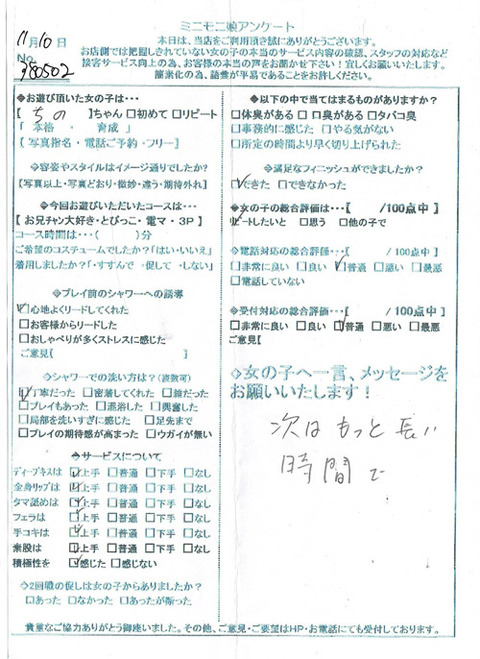 ミニモニ娘アンケート
11月10日
本日は、当店をご利用頂き誠にありがとうございます。
お店側では把握しきれていない女の子の本当のサービス内容の確認、スタッフの対応など
接客サービス向上の為、お客様の本当の声をお聞かせ下さい！宜しくお願いいたします。
No.
980502
簡素化の為、語彙が平易であることをお許しください。
◆お遊び頂いた女の子は・・・
【 ちの 】ちゃん □初めて □リピート
「 本格 ・ 育成 」
〔 写真指名・電話ご予約・フリー 〕
◇容姿やスタイルはイメージ通りでしたか?
【写真以上・写真どおり・微妙・違う・期待外れ】
◇今回お遊びいただいたコースは・・・
「 お兄チャン大好き・とびっこ・電マ・3P 」
コース時間は・・・( )分
ご希望のコスチュームでしたか?「はい・いいえ」
着用しましたか?「・すすんで ・促して ・しない」
◇プレイ前のシャワーへの誘導
□心地よくリードしてくれた
□お客様からリードした
□おしゃべりが多くストレスに感じた
ご意見【 】
◇シャワーでの洗い方は？(複数可)
□丁寧だった □密着してくれた □雑だった
□プレイもあった □混浴した □興奮した
□局部を洗いすぎに感じた □足先まで
□プレイの期待感が高まった □ウガイが無い
◆サービスについて
ディープキスは □上手 □普通 □下手 □なし
全身リップは □上手 □普通 □下手 □なし
タマ舐めは □上手 □普通 □下手 □なし
フェラは □上手 □普通 □下手 □なし
手コキは □上手 □普通 □下手 □なし
素股は □上手 □普通 □下手 □なし
積極性を □感じた □感じない
◇2回戦の促しは女の子からありましたか？
□あった □なかった □あったが断った
◆以下の中で当てはまるものがありますか？
□体臭がある □口臭がある □タバコ臭
□事務的に感じた □やる気がない
□所定の時間より早く切り上げられた
◇満足なフィニッシュができましたか?
□できた □できなかった
◆女の子の総合評価は・・・【 /100点中 】
リピートしたいと □思う □他の子で
◇電話対応の総合評価・・・【 /100点中 】
□非常に良い □良い □普通 □悪い □最悪
□電話していない
◆受付対応の総合評価・・・【 /100点中 】
□非常に良い □良い □普通 □悪い □最悪
ご意見【 】
◇女の子へ一言、メッセージを
お願いいたします！
次はもっと長い
時間で
貴重なご協力ありがとう御座いました。その他、ご意見・ご要望はHP・お電話にても受付しております。